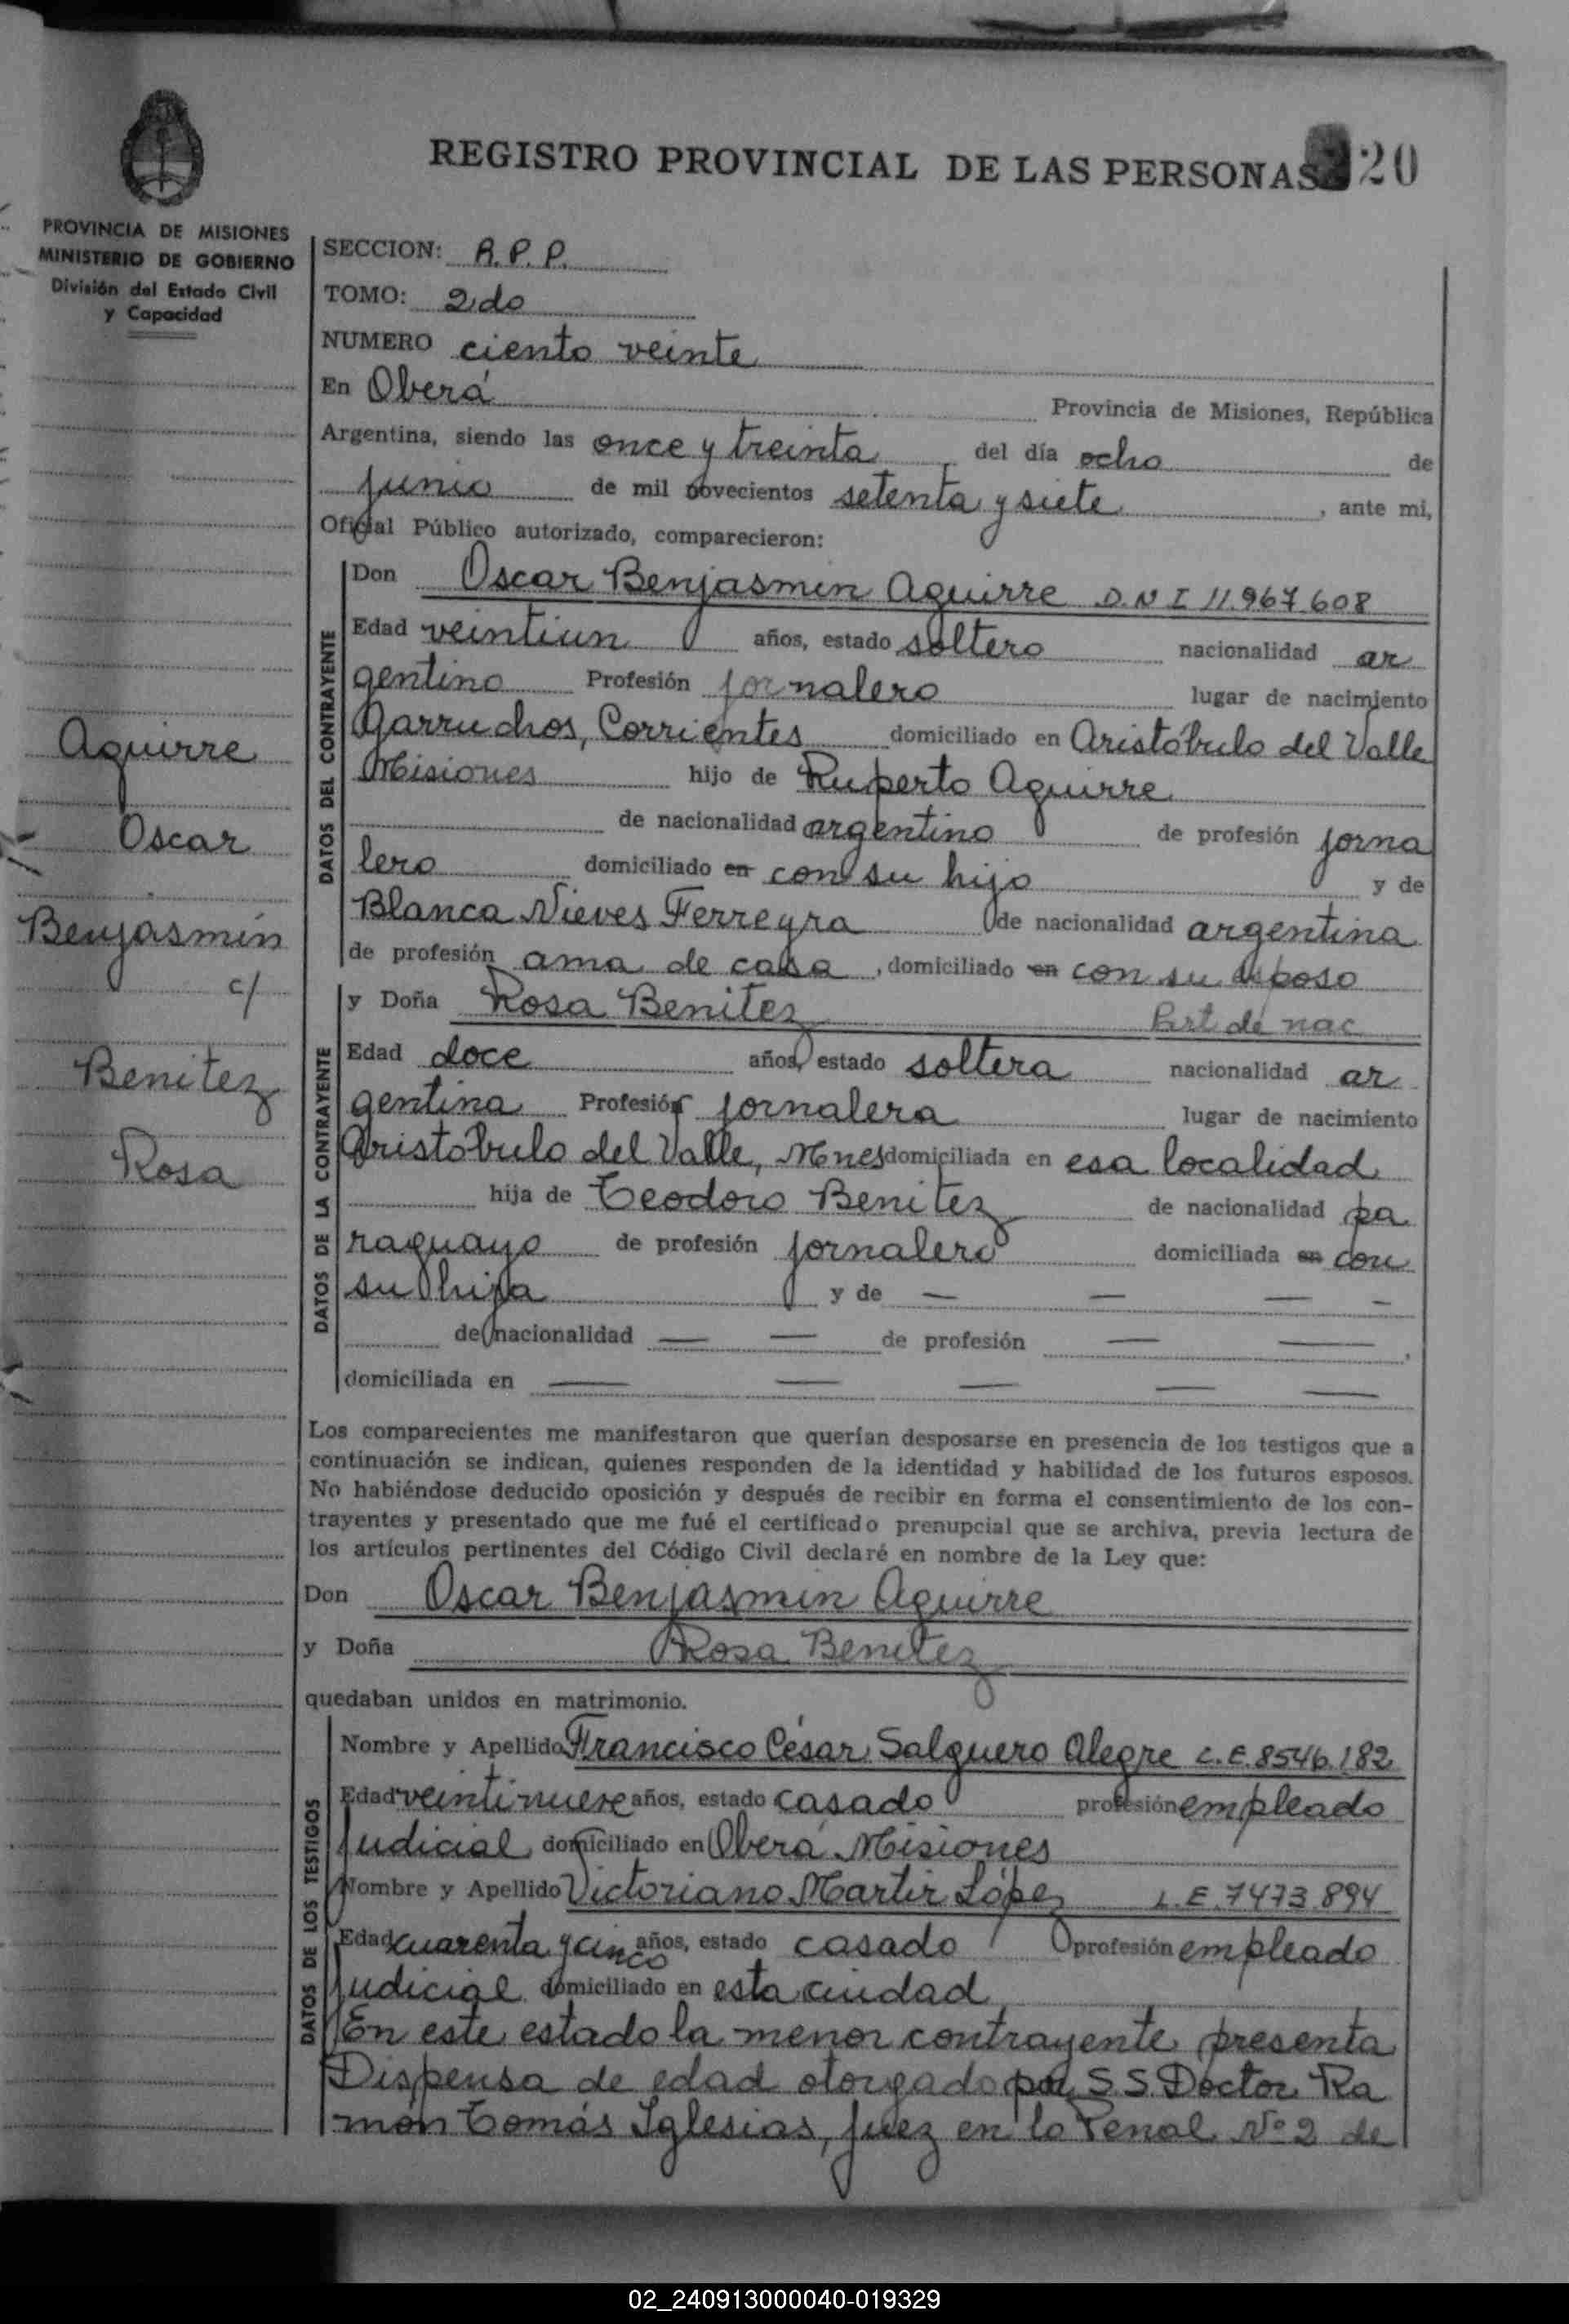 REGISTRO PROVINCIAL DE LAS PERSONAS 20
PROVINCIA DE MISIONES
MINISTERIO DE GOBIERNO
División del Estado Civil
y Capacidad
Aguirre
Oscar
Benjasmin
c/
Benitez
Rosa
SECCION: R.P.P.
TOMO: 2do
NUMERO ciento veinte
En Oberá Provincia de Misiones, República
Argentina, siendo las once y treinta del día ocho de
junio de mil novecientos setenta y siete, ante mi,
Oficial Público autorizado, comparecieron:
DATOS DEL CONTRAYENTE
Don Oscar Benjasmin Aguirre D.N I 11.967.608
Edad veintiun años, estado soltero nacionalidad ar
gentino Profesión jornalero lugar de nacimiento
Garruchos, Corrientes domiciliado en Aristóbulo del Valle
Misiones hijo de Ruperto Aguirre
de nacionalidad argentino de profesión jorna
lero domiciliado en con su hijo y de
Blanca Nieves Ferreyra de nacionalidad argentina
de profesión ama de casa, domiciliado en con su esposo
DATOS DE LA CONTRAYENTE
y Doña Rosa Benitez Part de nac
Edad doce años, estado soltera nacionalidad ar
gentina Profesión jornalera lugar de nacimiento
Aristóbulo del Valle, Mnes domiciliada en esa localidad
hija de Teodoro Benitez de nacionalidad pa
raguayo de profesión jornalero domiciliada en con
su hija y de — — — —
de nacionalidad — — de profesión — —,
domiciliada en — — — — —
Los comparecientes me manifestaron que querían desposarse en presencia de los testigos que a
continuación se indican, quienes responden de la identidad y habilidad de los futuros esposos.
No habiéndose deducido oposición y después de recibir en forma el consentimiento de los con-
trayentes y presentado que me fué el certificado prenupcial que se archiva, previa lectura de
los artículos pertinentes del Código Civil declaré en nombre de la Ley que:
Don Oscar Benjasmin Aguirre
y Doña Rosa Benitez
quedaban unidos en matrimonio.
DATOS DE LOS TESTIGOS
Nombre y Apellido Francisco César Salguero Alegre L.E. 8546.182
Edad veintinueve años, estado casado profesión empleado
judicial domiciliado en Oberá Misiones
Nombre y Apellido Victoriano Martir López L.E. 7473.894
Edad cuarenta y cinco años, estado casado profesión empleado
judicial domiciliado en esta ciudad
En este estado la menor contrayente presenta
Dispensa de edad otorgado por S.S. Doctor Ra
món Tomás Iglesias, Juez en lo Penal Nº 2 de
02_240913000040-019329